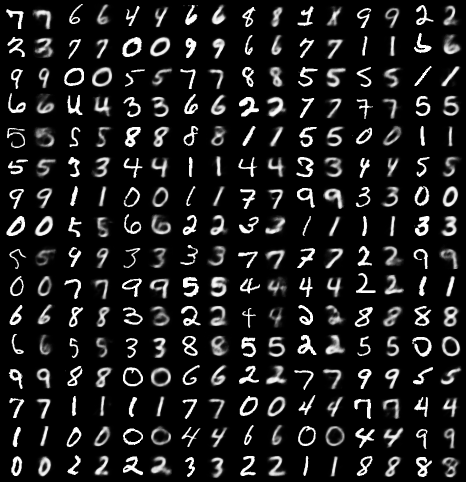 7 7 6 6 4 4 6 6 8 8 1 8 9 9 2 2
2 3 7 7 0 0 9 9 6 6 7 7 1 1 5 6
9 9 0 0 5 5 7 7 8 8 5 5 5 5 1 1
6 6 4 4 3 3 6 6 2 2 7 7 7 7 5 5
5 5 5 5 8 8 8 8 1 1 5 5 0 0 1 1
5 5 3 3 4 4 1 1 4 4 3 3 9 9 5 5
9 9 1 1 0 0 1 1 7 7 9 9 3 3 0 0
0 0 5 5 6 6 2 2 3 3 1 1 1 1 3 3
5 5 9 9 3 3 3 3 7 7 7 7 2 2 9 9
0 0 7 7 9 9 5 5 4 4 4 4 2 2 1 1
6 6 8 8 3 3 2 2 4 4 2 2 8 8 8 8
6 6 5 5 3 3 8 8 5 5 2 2 5 5 0 0
9 9 8 8 0 0 6 6 2 2 7 7 9 9 5 5
7 7 1 1 1 1 7 7 0 0 4 4 7 7 4 4
1 1 0 0 0 0 4 4 6 6 0 0 4 4 9 9
0 0 2 2 2 2 3 3 2 2 1 1 8 8 8 8